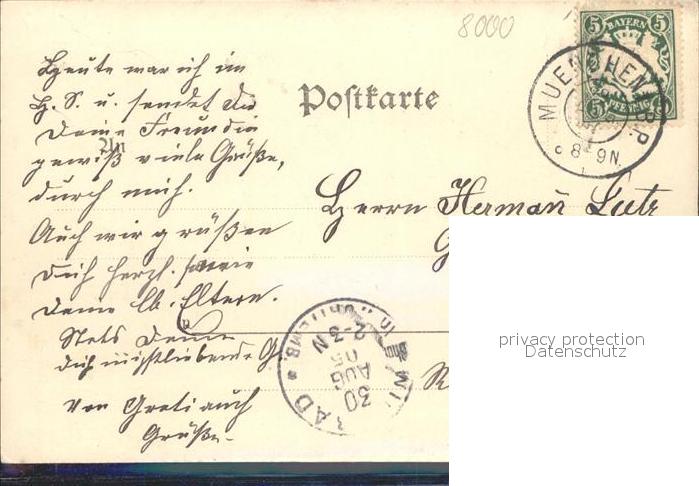 8000
5 BAYERN 5
5 PFENNIG 5
MUENCHEN B.P.
8-9 N.
Postkarte
An
Heute war ich im
H. S. u. sendet die
Deine Freundin
gewiß viele Grüße,
durch mich.
Auch wir grüßen
dich herzl. sowie
deine lb. Eltern.
Stets Deine
dich liebende G.
Von Greti auch
Grüße.
Herrn Herman Lutz
G
R
2-3 N
30
AUG
05
BAD
privacy protection
Datenschutz